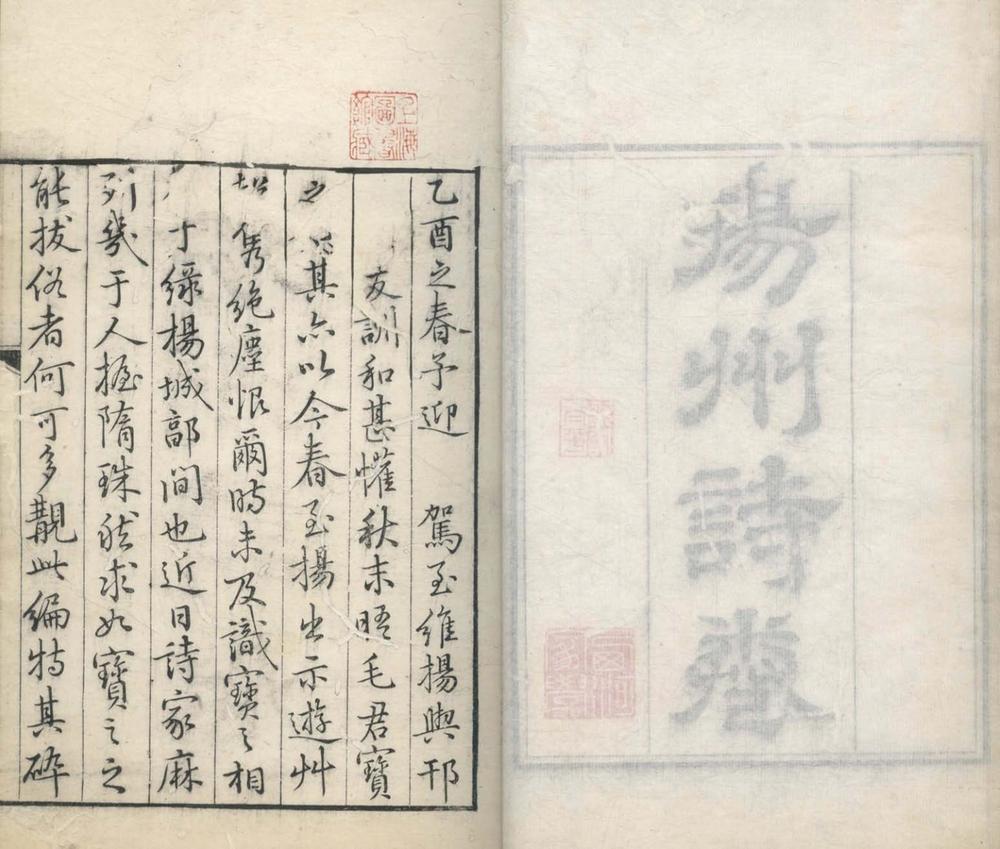 揚州詩卷
上海圖書館藏
乙酉之春予迎 駕至維揚與邗
友訓和甚懽秋末晤毛君寶
之 其亦以今春至揚出示遊艸
雋絶塵恨爾時未及識寶之相
于綠楊城郭間也近日詩家麻
列幾于人握隋珠然求如寶之之
能拔俗者何可多覯此編特其碎